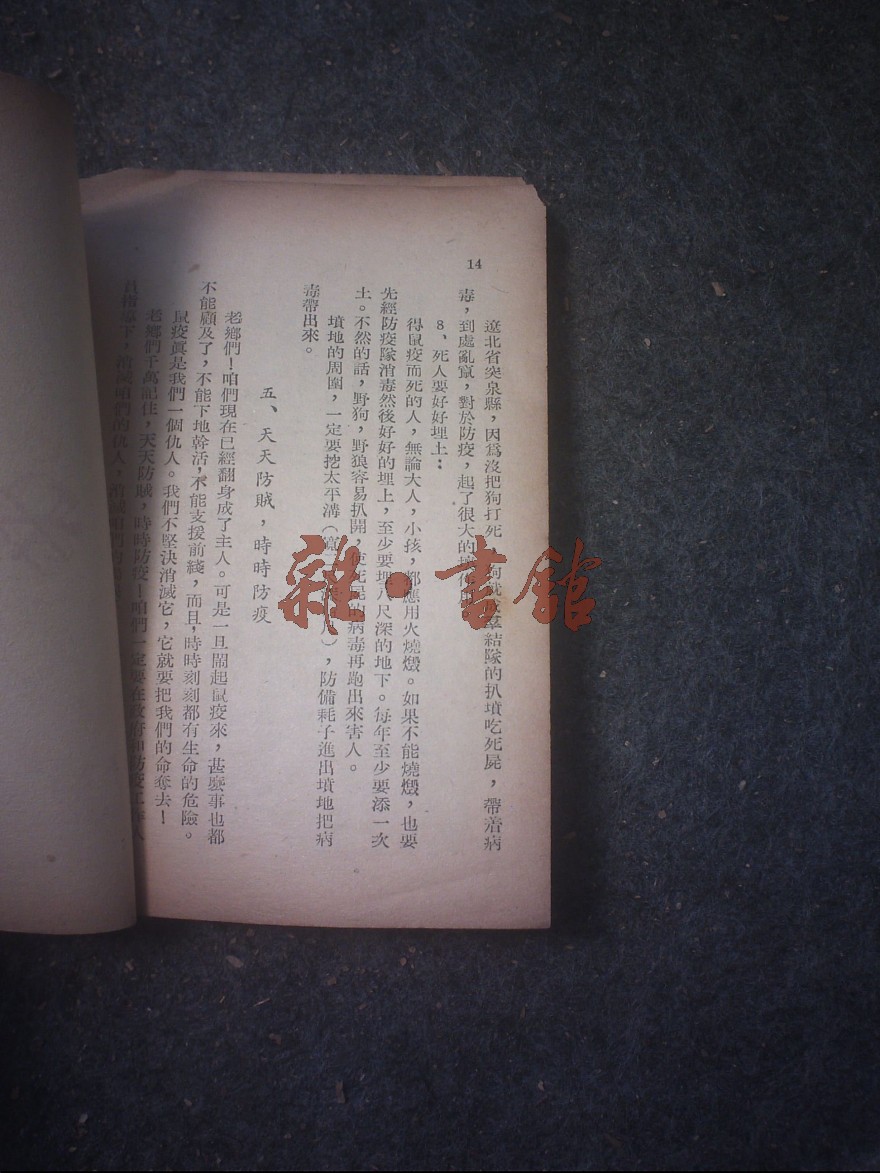 14
遼北省突泉縣，因爲沒把狗打死，狗就成羣結隊的扒墳吃死屍，帶着病
毒，到處亂竄，對於防疫，起了很大的
8、死人要好好埋上：
得鼠疫而死的人，無論大人，小孩，都應用火燒燬。如果不能燒燬，也要
先經防疫隊消毒然後好好的埋上，至少要埋八尺深的地下。每年至少要添一次
土。不然的話，野狗，野狼容易扒開，使死屍的病毒再跑出來害人。
墳地的周圍，一定要挖太平溝（寬），防備耗子進出墳地把病
毒帶出來。
五、天天防賊，時時防疫
老鄉們！咱們現在已經翻身成了主人。可是一旦鬧起鼠疫來，甚麼事也都
不能顧及了，不能下地幹活，不能支援前綫，而且，時時刻刻都有生命的危險。
鼠疫眞是我們一個仇人。我們不堅決消滅它，它就要把我們的命奪去！
老鄉們千萬記住，天天防賊，時時防疫！咱們一定要在政府和防疫工作人
雜·書館